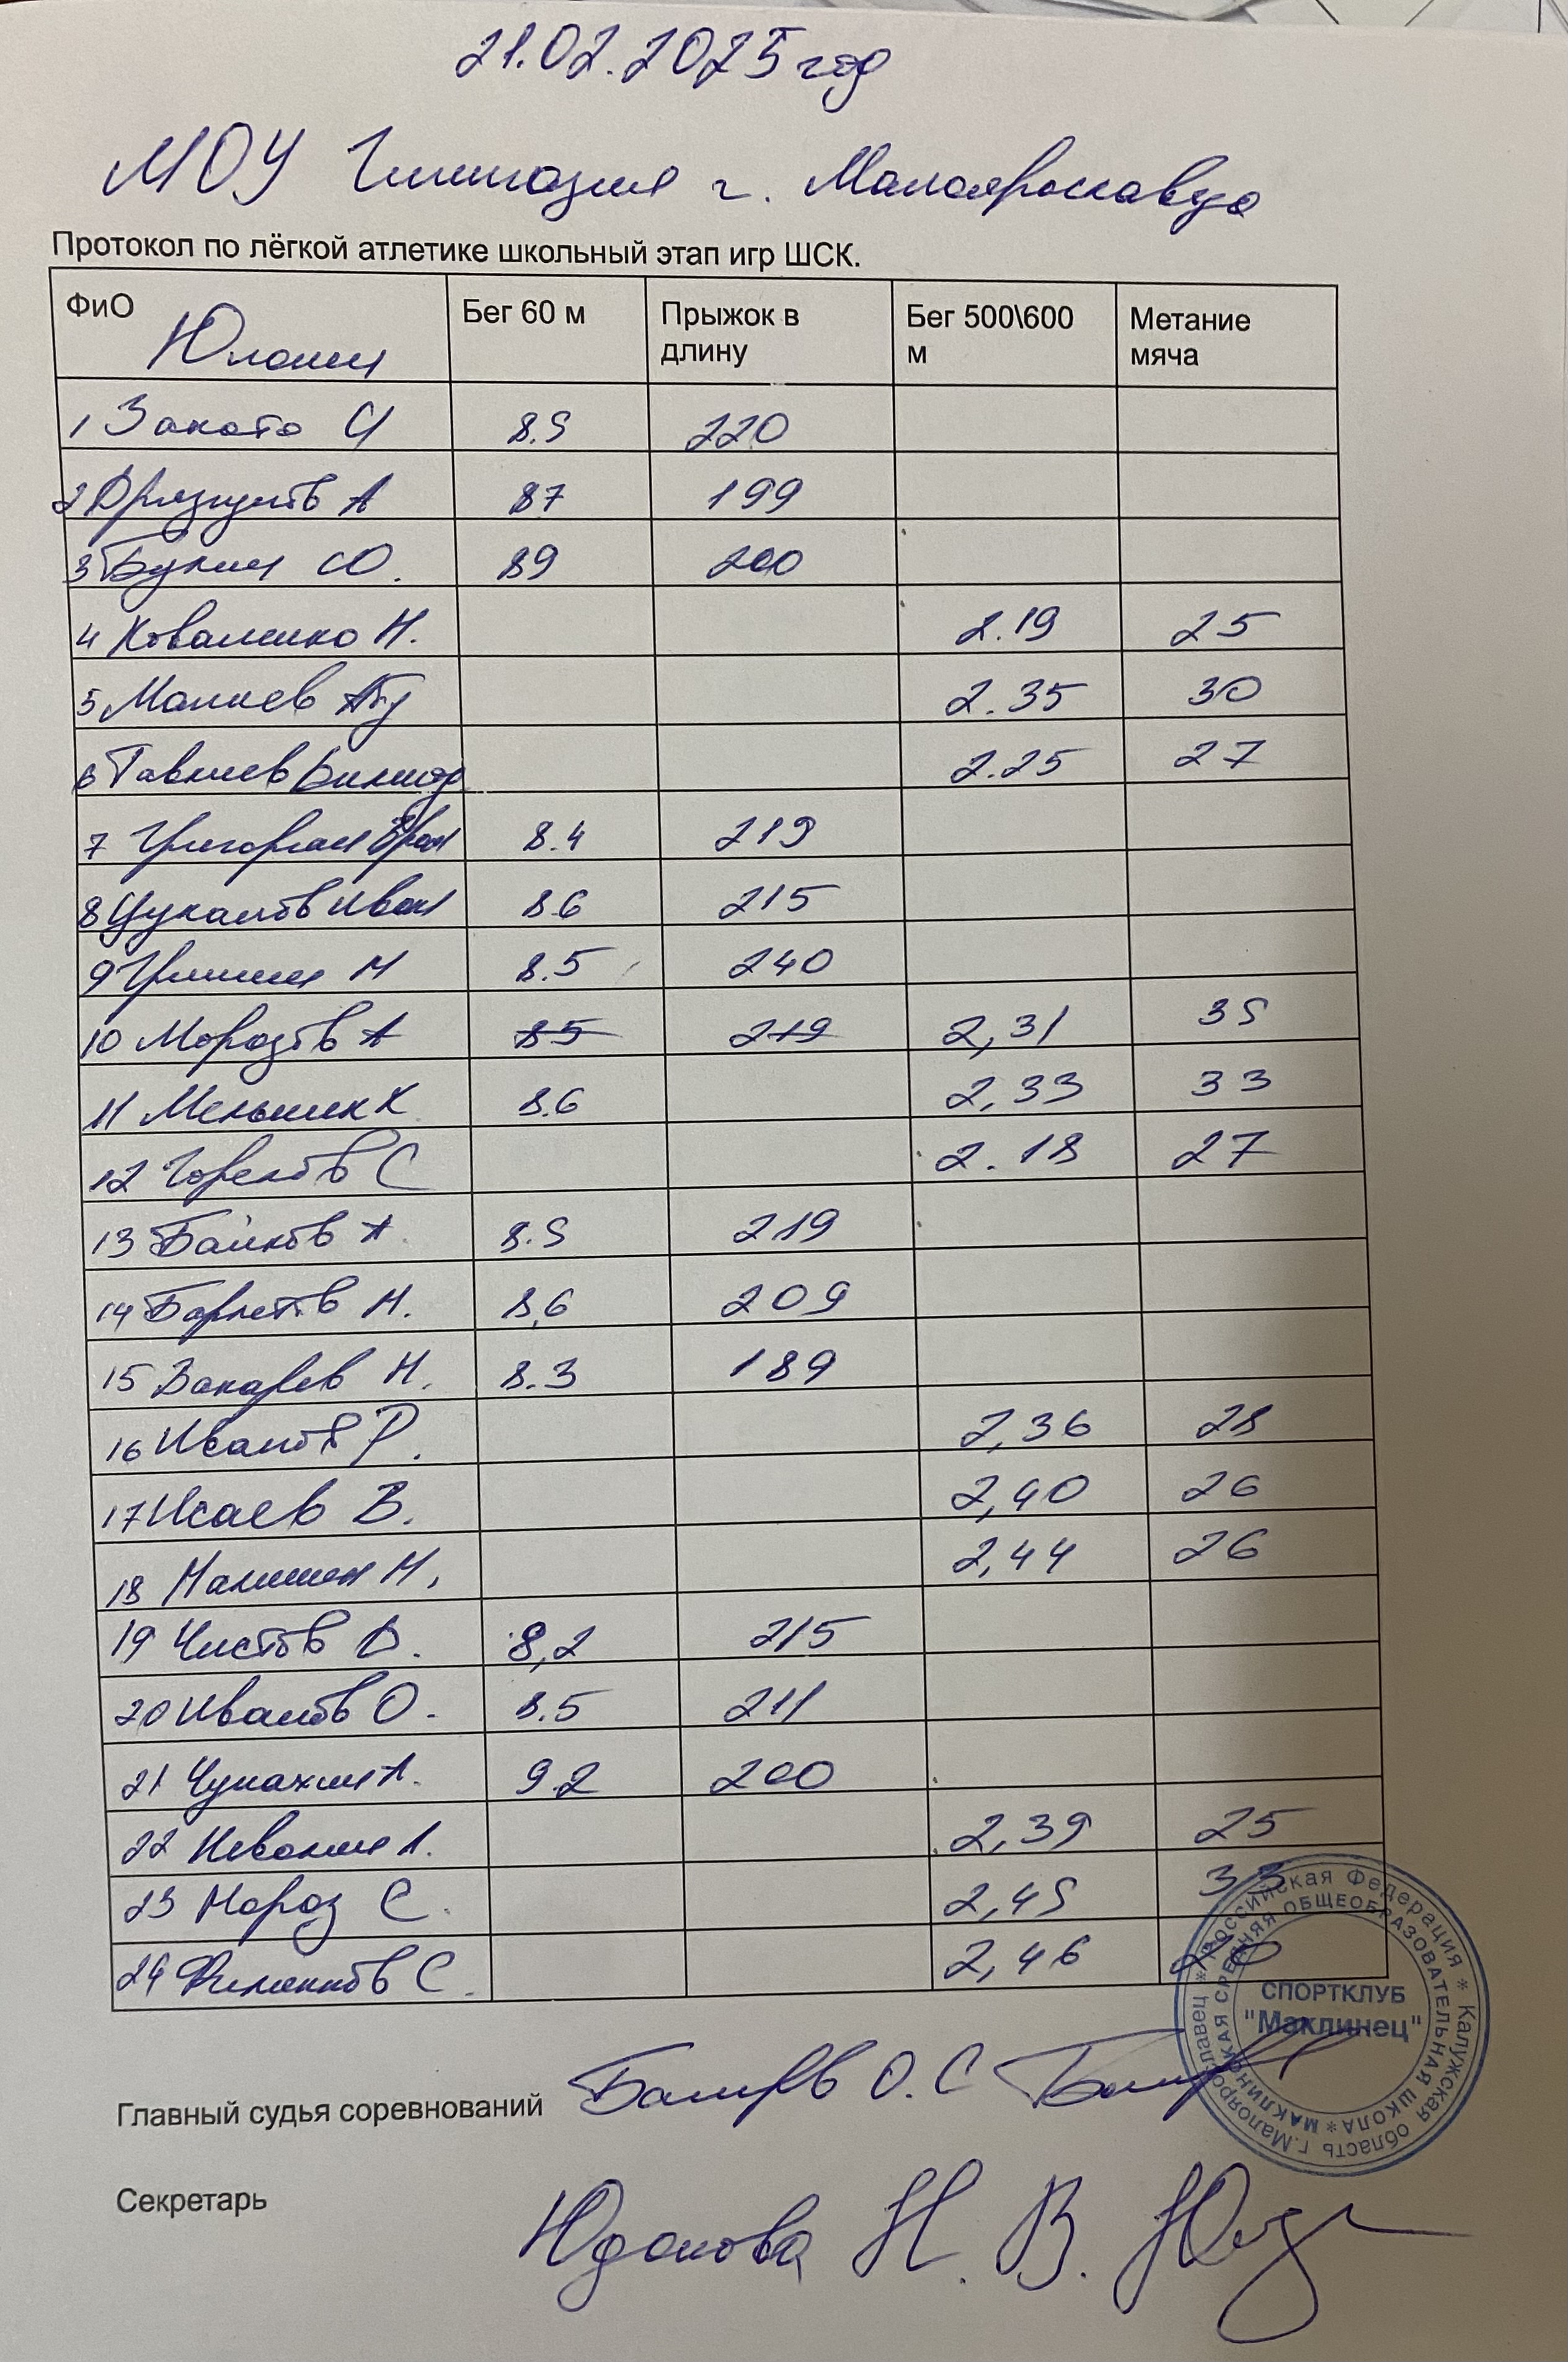 21.02.2025 год
МОУ Гимназия г. Малоярославца
Протокол по лёгкой атлетике школьный этап игр ШСК.
ФиО Юноши Бег 60 м Прыжок в длину Бег 500\600 м Метание мяча
1 8.5 220
2 А 87 199
3 Букин 89 200
4 Коваленко Н. 2.19 25
5 2.35 30
6 2.25 27
7 Григорян 8.4 219
8 Цуканов Иван 8.6 215
9 Гришин М 8.5 240
10 Морозов А 8.5 219 2,31 35
11 Меньших К 8.6 2,33 33
12 Горелов С 2.18 27
13 Байков А. 8.5 219
14 8,6 209
15 8.3 189
16 Иванов Р. 2,36 28
17 Исаев В. 2,40 26
18 2,44 26
19 Чистов 8,2 215
20 Иванов О. 8.5 211
21 9.2 200
22 2,39 25
23 Мороз С. 2,45 33
24 С. 2,46
Российская Федерация * Калужская область г.Малоярославец *
МАКЛИНСКАЯ СРЕДНЯЯ ОБЩЕОБРАЗОВАТЕЛЬНАЯ ШКОЛА *
СПОРТКЛУБ
"Маклинец"
Главный судья соревнований О.С
Секретарь Юданова Н. В.